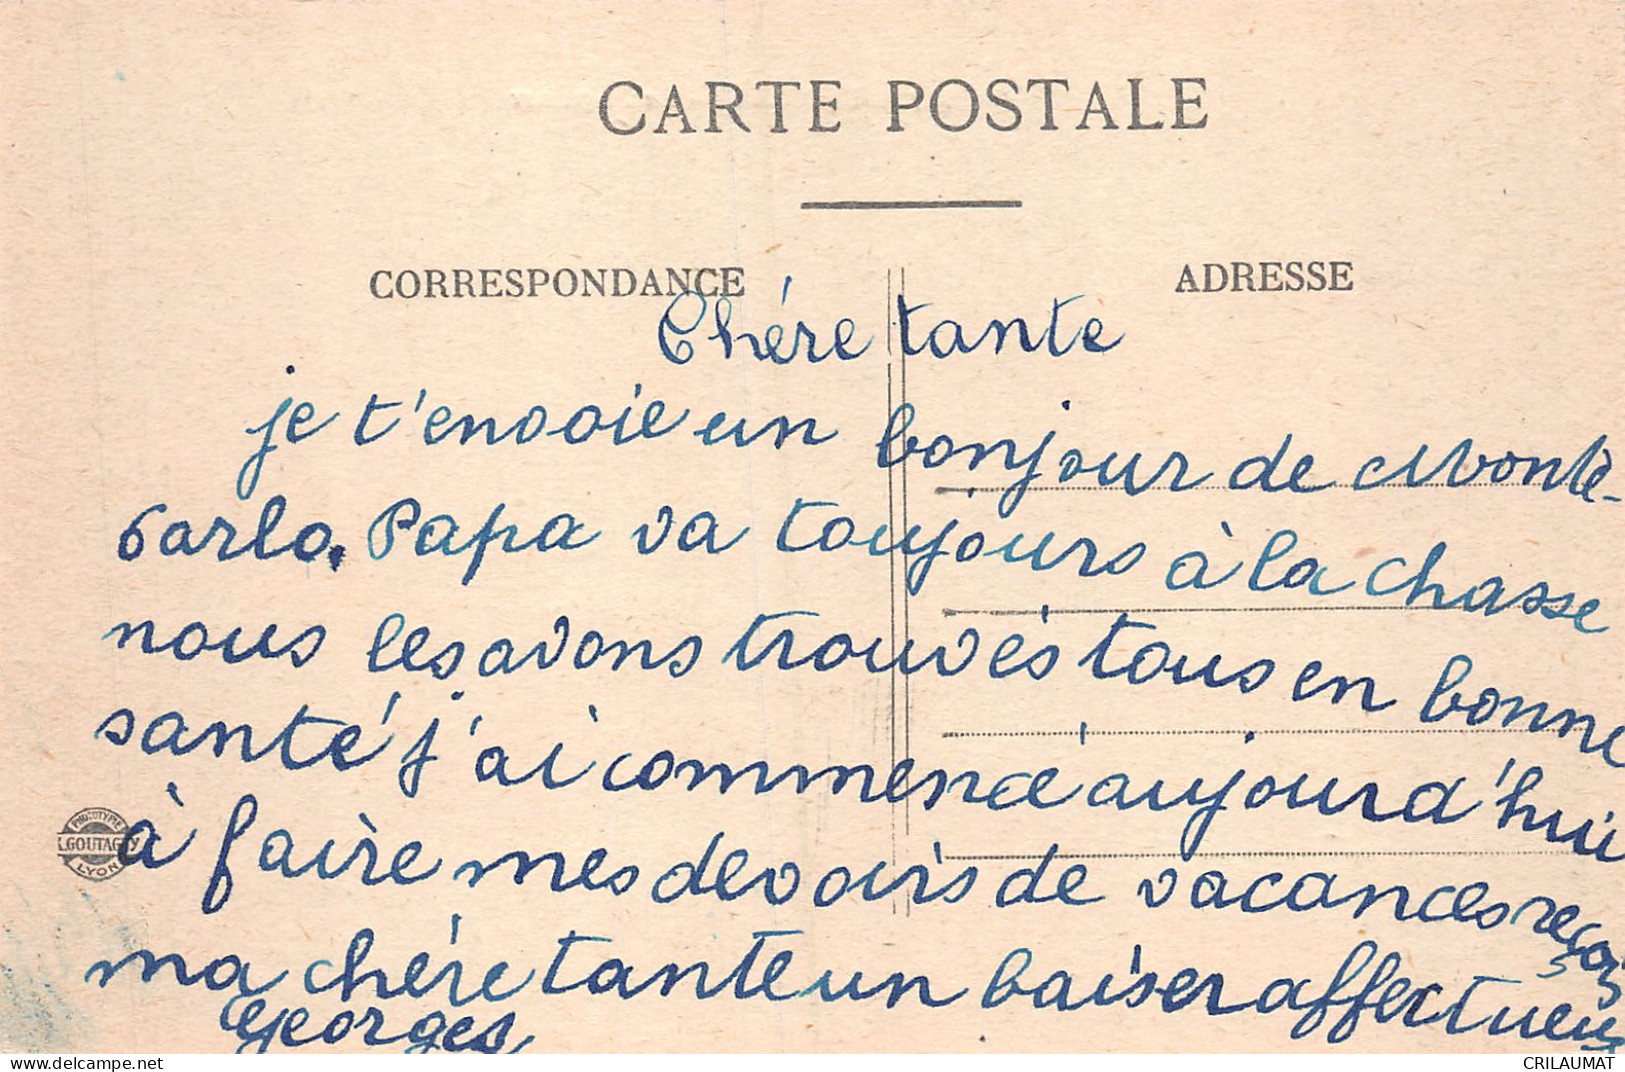 CARTE POSTALE
CORRESPONDANCE
ADRESSE
Chére tante
je t'envoie un bonjour de Monte-
Carlo. Papa va toujours à la chasse
nous les avons trouvés tous en bonne
santé j'ai commencé aujourd'hui
à faire mes devoirs de vacances reçois
ma chére tante un baiser affectueux
Georges
PHOTOTYPIE
GOUTAGNY
LYON
delcampe.net
CRILAUMAT